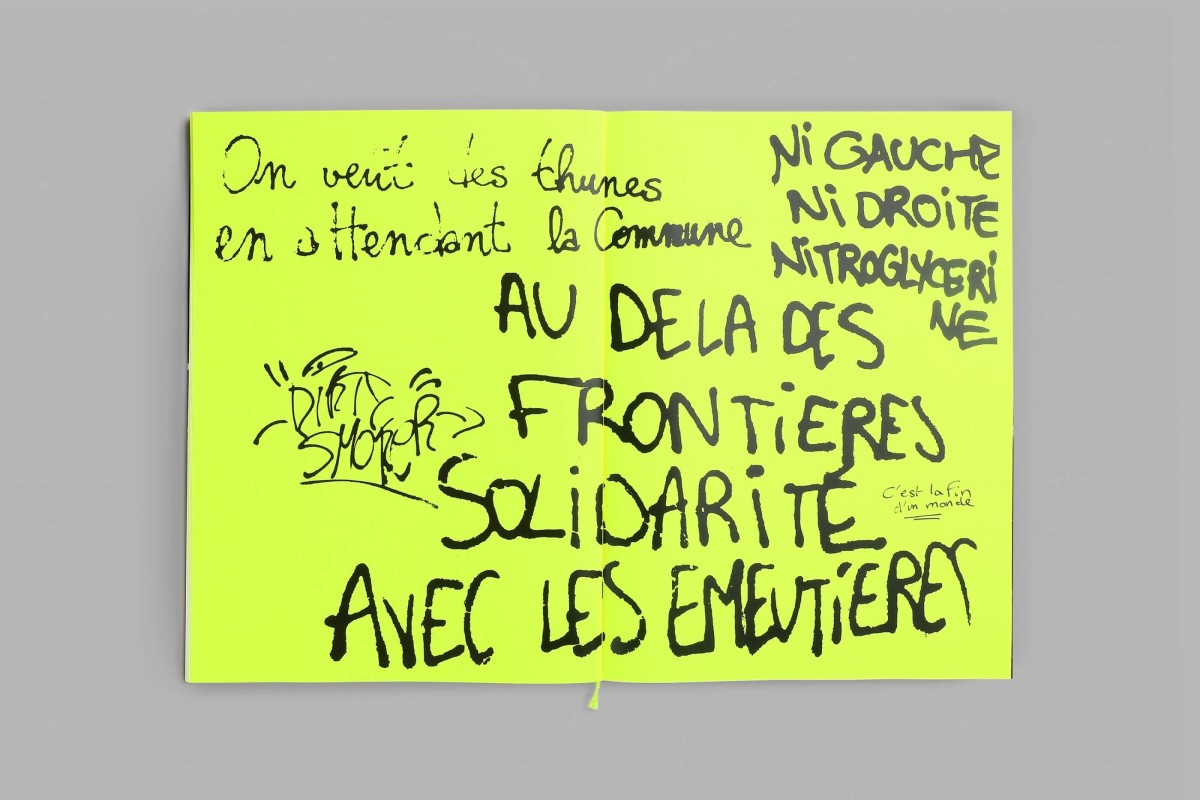 On veut des thunes
en attendant la Commune
Ni GAUCHE
Ni DROiTE
NiTROGLYCERi
NE
AU DELA DES
FRONTiERES
SOLiDARiTÉ
AVEC LES EMEUTiERES
DiRTY
SMOKER
C'est la fin
d'un monde